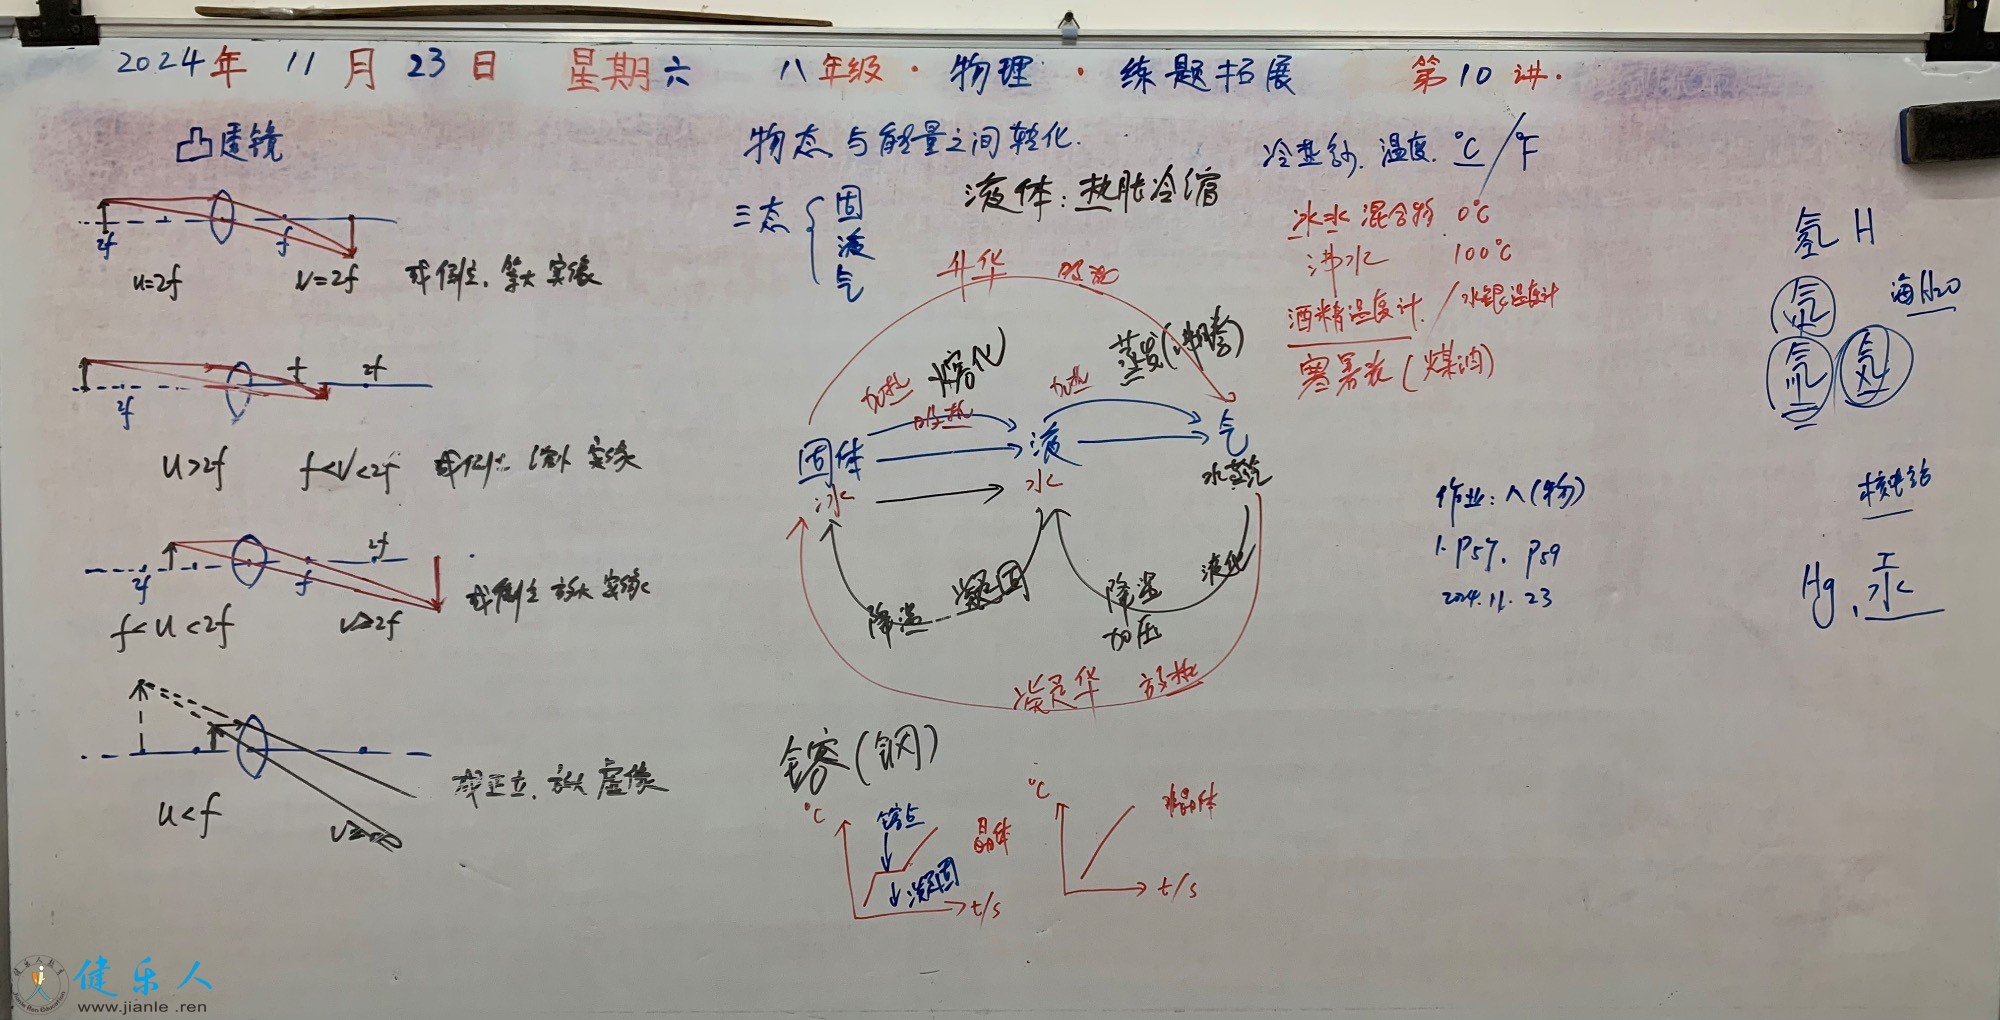 2024年 11月 23日 星期六 八年级·物理·练题拓展 第10讲.
凸透镜
2f f
u=2f v=2f 成倒立、等大 实像
f 2f
2f
u>2f f<v<2f 成倒立 缩小 实像
2f
2f f
f<u<2f v>2f 成倒立 放大 实像
u<f
成正立、放大 虚像
物态与能量之间转化.
三态 { 固
液
气
液体:热胀冷缩
升华 吸热
加热 熔化
吸热
加热 蒸发(沸腾)
固体 液 气
冰 水 水蒸气
降温 凝固
降温 液化
加压
凝华 放热
熔(钢)
℃ 熔点 晶体
凝固
t/s
℃ 非晶体
t/s
温度. ℃/℉
冰水混合物 0℃
沸水 100℃
酒精温度计 / 水银温度计
寒暑表(煤油)
作业:八(物)
1. P57、P59
2024.11.23
氢 H
氕
氘
氚
海H2O
核电站
Hg、汞
健乐人
www.jianle.ren